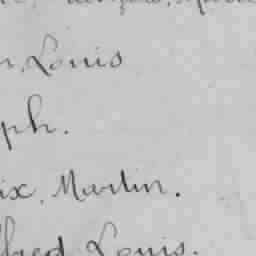 n, Louis
ph.
ix, Martin.
fred Louis.